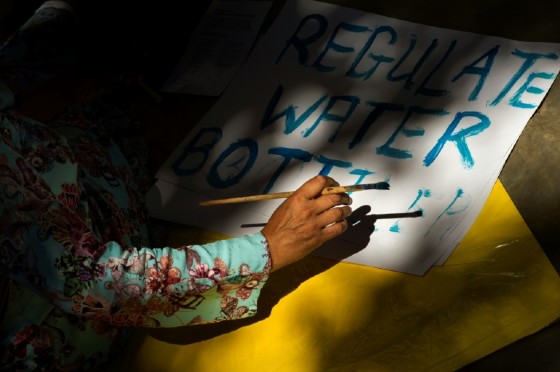 REGULATE
WATER
BOTTLER